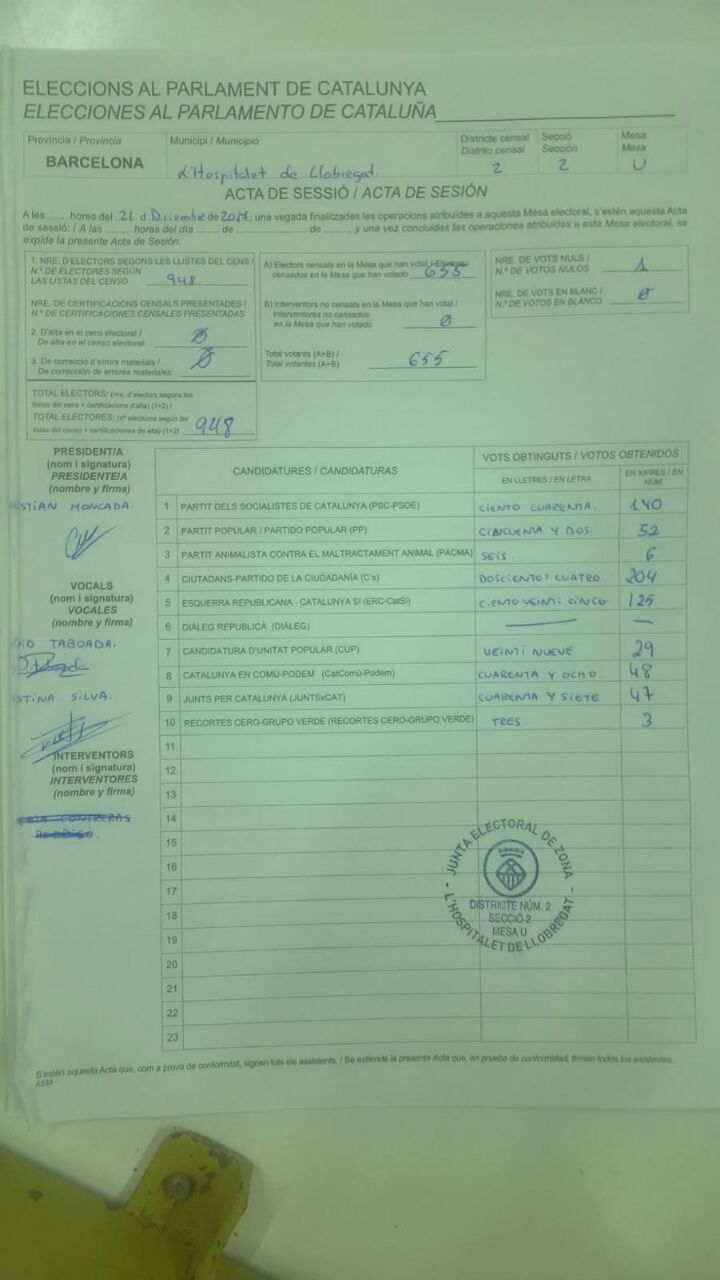 ELECCIONS AL PARLAMENT DE CATALUNYA
ELECCIONES AL PARLAMENTO DE CATALUÑA
Provincia / Provincia
BARCELONA
Municipi / Municipio
L'Hospitalet de Llobregat.
Districte censal
Distrito censal
2
Secció
Sección
2
Mesa
Mesa
U
ACTA DE SESSIÓ / ACTA DE SESIÓN
A les ....... hores del 21 d Diciembre de 2017, una vegada finalitzades les operacions atribuïdes a aquesta Mesa electoral, s'estén aquesta Acta
de sessió: / A las ........ horas del día ........ de ........ de ........, y una vez concluidas las operaciones atribuidas a esta Mesa electoral, se
expide la presente Acta de Sesión:
1. NRE. D'ELECTORS SEGONS LES LLISTES DEL CENS /
N.º DE ELECTORES SEGÚN
LAS LISTAS DEL CENSO 948
NRE. DE CERTIFICACIONS CENSALS PRESENTADES /
N.º DE CERTIFICACIONES CENSALES PRESENTADAS
2. D'alta en el cens electoral /
De alta en el censo electoral: Ø
3. De correcció d'errors materials /
De corrección de errores materiales: Ø
TOTAL ELECTORS: (nre. d'electors segons les
llistes del cens + certificacions d'alta) (1+2) /
TOTAL ELECTORES: (nº electores según las
listas del censo + certificaciones de alta) (1+2) 948
A) Electors censats en la Mesa que han votat / Electores
censados en la Mesa que han votado 655
B) Interventors no censats en la Mesa que han votat /
Interventores no censados
en la Mesa que han votado Ø
Total votants (A+B) /
Total votantes (A+B) 655
NRE. DE VOTS NULS /
N.º DE VOTOS NULOS 1
NRE. DE VOTS EN BLANC /
N.º DE VOTOS EN BLANCO Ø
PRESIDENT/A
(nom i signatura)
PRESIDENTE/A
(nombre y firma)
STIAN MONCADA.
VOCALS
(nom i signatura)
VOCALES
(nombre y firma)
ID TABOADA.
STINA SILVA.
INTERVENTORS
(nom i signatura)
INTERVENTORES
(nombre y firma)
CANDIDATURES / CANDIDATURAS
VOTS OBTINGUTS / VOTOS OBTENIDOS
EN LLETRES / EN LETRA
EN XIFRES / EN NÚM
1 PARTIT DELS SOCIALISTES DE CATALUNYA (PSC-PSOE) CIENTO CUARENTA. 140
2 PARTIT POPULAR / PARTIDO POPULAR (PP) CINCUENTA Y DOS. 52
3 PARTIT ANIMALISTA CONTRA EL MALTRACTAMENT ANIMAL (PACMA) SEIS. 6
4 CIUTADANS-PARTIDO DE LA CIUDADANÍA (C's) DOSCIENTOS CUATRO 204
5 ESQUERRA REPUBLICANA - CATALUNYA SÍ (ERC-CatSí) CIENTO VEINTI CINCO 125
6 DIÀLEG REPUBLICÀ (DIÀLEG) — —
7 CANDIDATURA D'UNITAT POPULAR (CUP) VEINTI NUEVE 29
8 CATALUNYA EN COMÚ-PODEM (CatComú-Podem) CUARENTA Y OCHO 48
9 JUNTS PER CATALUNYA (JUNTSxCAT) CUARENTA Y SIETE 47
10 RECORTES CERO-GRUPO VERDE (RECORTES CERO-GRUPO VERDE) TRES 3
11
12
13
14
15
16
17
18
19
20
21
22
23
- JUNTA ELECTORAL DE ZONA -
DISTRICTE NÚM. 2
SECCIÓ 2
MESA U
L'HOSPITALET DE LLOBREGAT
S'estén aquesta Acta que, com a prova de conformitat, signen tots els assistents. / Se extiende la presente Acta que, en prueba de conformidad, firman todos los asistentes.
ASM